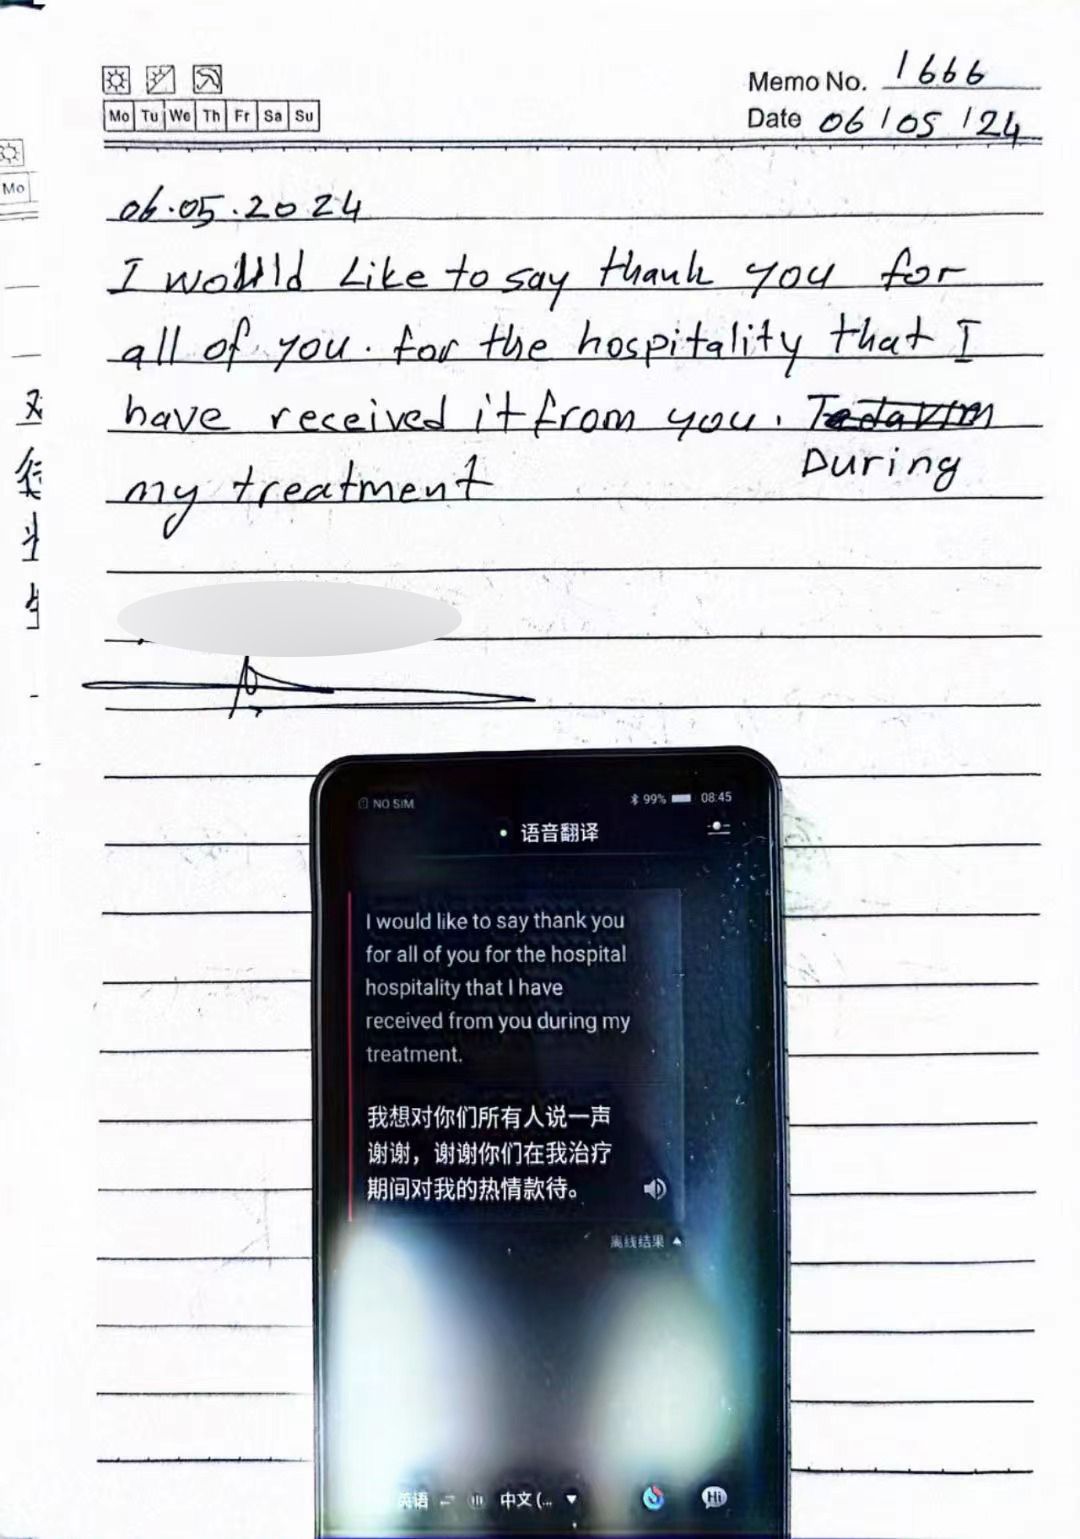 Mo Tu We Th Fr Sa Su
Memo No. 1666
Date 06/05/24
Mo
06.05.2024
I would Like to say thank you for
all of you. for the hospitality that I
have received it from you.
During
my treatment
NO SIM
99% 08:45
语音翻译
I would like to say thank you
for all of you for the hospital
hospitality that I have
received from you during my
treatment.
我想对你们所有人说一声
谢谢，谢谢你们在我治疗
期间对我的热情款待。
离线结果
英语 中文(...
Hi